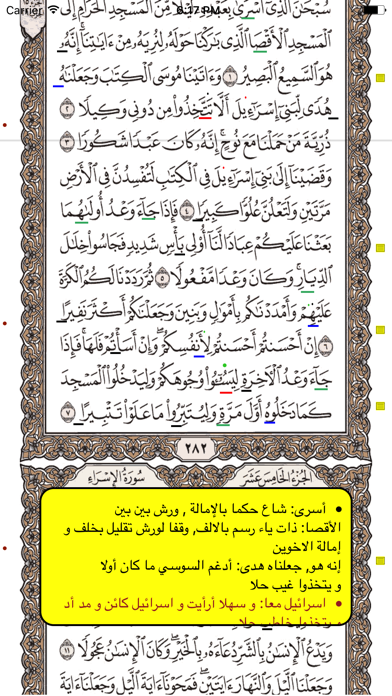 Carrier 6:37 PM
سُبْحَٰنَ ٱلَّذِىٓ أَسْرَىٰ بِعَبْدِهِۦ لَيْلًا مِّنَ ٱلْمَسْجِدِ ٱلْحَرَامِ إِلَى
ٱلْمَسْجِدِ ٱلْأَقْصَا ٱلَّذِى بَٰرَكْنَا حَوْلَهُۥ لِنُرِيَهُۥ مِنْ ءَايَٰتِنَآ إِنَّهُۥ
هُوَ ٱلسَّمِيعُ ٱلْبَصِيرُ ١ وَءَاتَيْنَا مُوسَى ٱلْكِتَٰبَ وَجَعَلْنَٰهُ
هُدًى لِّبَنِىٓ إِسْرَٰٓءِيلَ أَلَّا تَتَّخِذُوا۟ مِن دُونِى وَكِيلًا ٢
ذُرِّيَّةَ مَنْ حَمَلْنَا مَعَ نُوحٍ إِنَّهُۥ كَانَ عَبْدًا شَكُورًا ٣
وَقَضَيْنَآ إِلَىٰ بَنِىٓ إِسْرَٰٓءِيلَ فِى ٱلْكِتَٰبِ لَتُفْسِدُنَّ فِى ٱلْأَرْضِ
مَرَّتَيْنِ وَلَتَعْلُنَّ عُلُوًّا كَبِيرًا ٤ فَإِذَا جَآءَ وَعْدُ أُولَىٰهُمَا
بَعَثْنَا عَلَيْكُمْ عِبَادًا لَّنَآ أُو۟لِى بَأْسٍ شَدِيدٍ فَجَاسُوا۟ خِلَٰلَ
ٱلدِّيَارِ وَكَانَ وَعْدًا مَّفْعُولًا ٥ ثُمَّ رَدَدْنَا لَكُمُ ٱلْكَرَّةَ
عَلَيْهِمْ وَأَمْدَدْنَٰكُم بِأَمْوَٰلٍ وَبَنِينَ وَجَعَلْنَٰكُمْ أَكْثَرَ نَفِيرًا
٦ إِنْ أَحْسَنتُمْ أَحْسَنتُمْ لِأَنفُسِكُمْ وَإِنْ أَسَأْتُمْ فَلَهَا فَإِذَا
جَآءَ وَعْدُ ٱلْءَاخِرَةِ لِيَسُـۥٓـُٔوا۟ وُجُوهَكُمْ وَلِيَدْخُلُوا۟ ٱلْمَسْجِدَ
كَمَا دَخَلُوهُ أَوَّلَ مَرَّةٍ وَلِيُتَبِّرُوا۟ مَا عَلَوْا۟ تَتْبِيرًا ٧
٢٨٢
الجُزْءُ الخَامِسَ عَشَرَ سُورَةُ الإِسْرَاءِ
• أسرى: شاع حكما بالإمالة , ورش بين بين
الأقصا: ذات ياء رسم بالالف, وقفا لورش تقليل بخلف و
إمالة الاخوين
إنه هو, جعلناه هدى: أدغم السوسي ما كان أولا
و يتخذوا غيب حلا
• اسرائيل معا: و سهلا أرأيت و اسرائيل كائن و مد أد
و يتخذوا خاطب حلا
وَيَدْعُ ٱلْإِنسَٰنُ بِٱلشَّرِّ دُعَآءَهُۥ بِٱلْخَيْرِ وَكَانَ ٱلْإِنسَٰنُ عَجُولًا ١١
وَجَعَلْنَا ٱلَّيْلَ وَٱلنَّهَارَ ءَايَتَيْنِ فَمَحَوْنَآ ءَايَةَ ٱلَّيْلِ وَجَعَلْنَآ ءَايَةَ